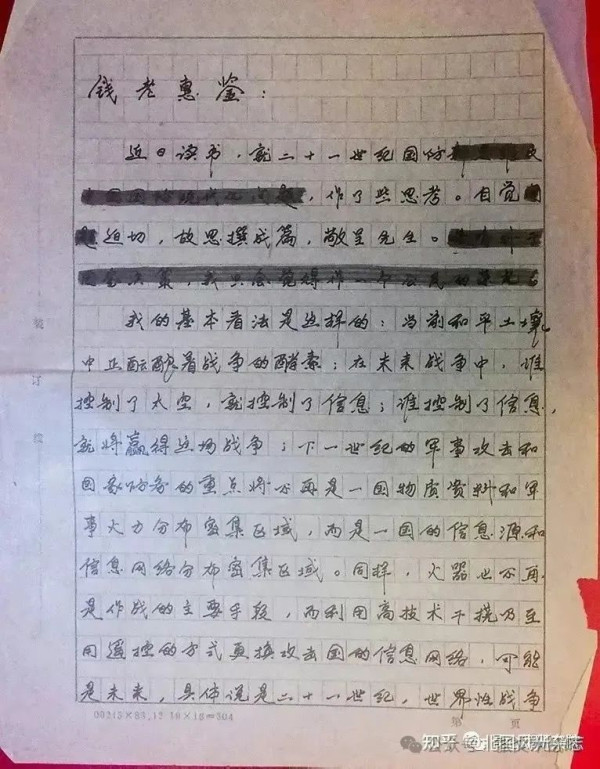 钱老惠鉴：
近日读书，就二十一世纪国防
，作了些思考。自觉
迫切，故思撰成篇，敬呈先生。
我的基本看法是这样的：当前和平土壤
中正酝酿着战争的酵素；在未来战争中，谁
控制了太空，就控制了信息；谁控制了信息，
就将赢得这场战争；下一世纪的军事攻击和
国家防务的重点将不再是一国物质资料和军
事火力分布密集区域，而是一国的信息源和
信息网络分布密集区域。同样，火器也不再
是作战的主要手段，而利用高技术干扰乃至
用遥控的方式更换攻击国的信息网络，可能
是未来，具体说是二十一世纪，世界性战争
装订线
第 页
知乎 @北国风光杂志
公众号